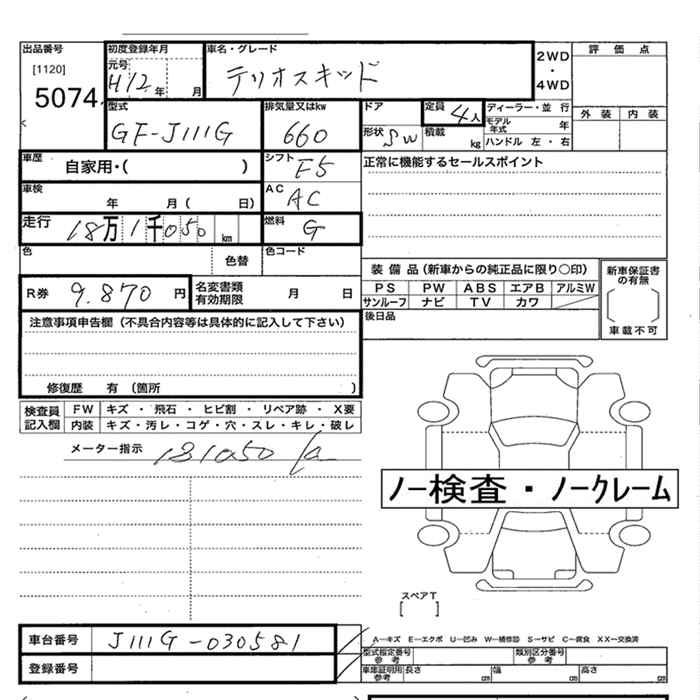 出品番号 初度登録年月 車名・グレード 2WD・4WD 評価点
[1120] 元号 H12 年 月 テリオスキッド
5074 型式 排気量又はkw ドア 定員 4人 ディーラー・並行 外装 内装
GF-J111G 660 形状 SW 積載 kg モデル年式 年
ハンドル 左・右
車歴 自家用・( ) シフト F5 正常に機能するセールスポイント
車検 年 月( 日) AC AC
走行 18万1千050 km 燃料 G
色 色替 色コード
装備品(新車からの純正品に限り○印) 新車保証書の有無
R券 9.870 円 名変書類有効期限 月 日 PS PW ABS エアB アルミW
サンルーフ ナビ TV カワ
車載不可
注意事項申告欄(不具合内容等は具体的に記入して下さい) 後日品
修復歴 有 (箇所 )
検査員記入欄 FW キズ・飛石・ヒビ割・リペア跡・X要
内装 キズ・汚レ・コゲ・穴・スレ・キレ・破レ
メーター指示 181050
ノー検査・ノークレーム
スペアT
[ ]
車台番号 J111G-030581 A－キズ E－エクボ U－凹み W－補修跡 S－サビ C－腐食 XX－交換済
型式指定番号 参考 類別区分番号 参考
登録番号 車庫証明用 参考 長さ cm 幅 cm 高さ cm